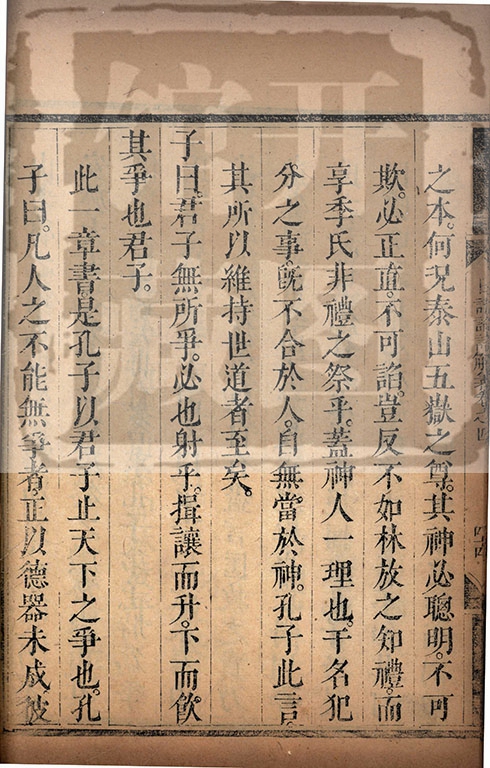 之本。何況泰山五嶽之尊。其神必聰明。不可
欺。必正直。不可諂。豈反不如林放之知禮。而
享季氏非禮之祭乎。蓋神人一理也。干名犯
分之事。旣不合於人。自無當於神。孔子此言。
其所以維持世道者至矣。
子曰。君子無所爭。必也射乎。揖讓而升。下而飮。
其爭也君子。
此一章書是孔子以君子止天下之爭也。孔
子曰。凡人之不能無爭者。正以德器未成。彼